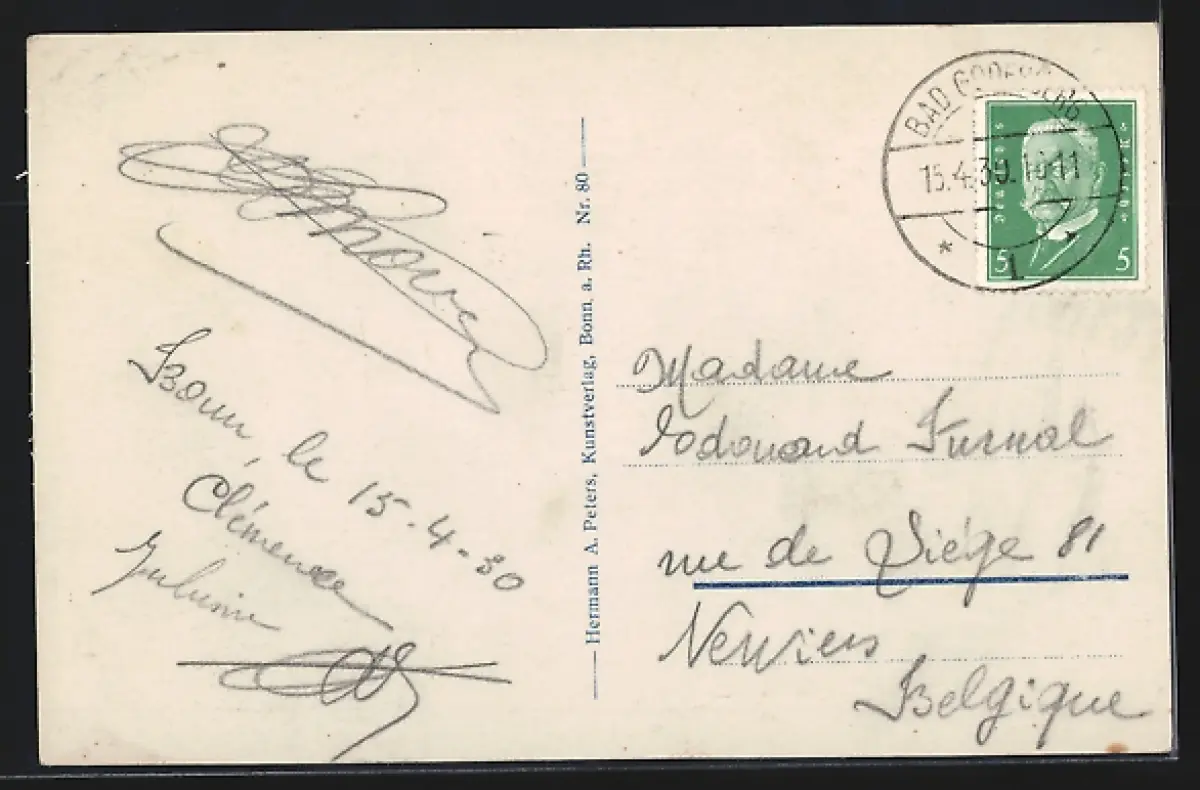 Bonn, le 15-4-30
Clémence
Hermann A. Peters, Kunstverlag, Bonn a. Rh. Nr. 80
BAD GODESBERG
15.4.30.10-11
* 1
5 5
Madame
Edouard Furnal
rue de Liége 81
Verviers
Belgique